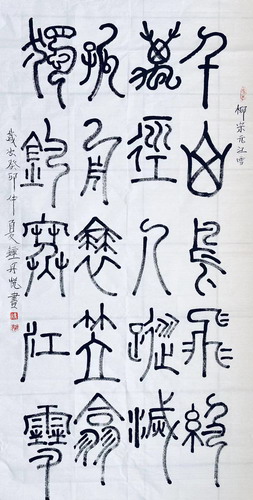 柳宗元江雪
千山鳥飛絕
萬徑人蹤滅
孤舟蓑笠翁
獨釣寒江雪
歲次癸卯仲夏 書